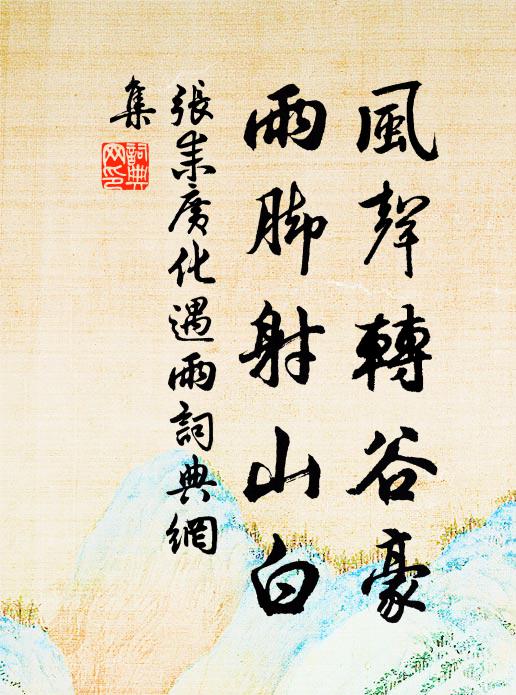 風聲轉谷豪
雨脚射山白
張耒廣化遇雨詞典網
集
詞典網印